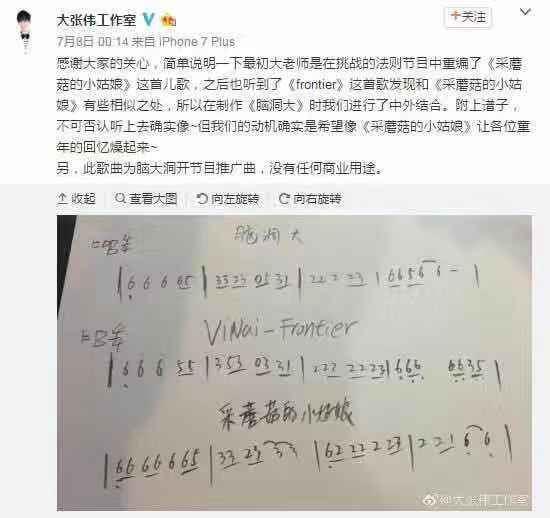 大张伟工作室
+关注
7月8日 00:14 来自 iPhone 7 Plus
感谢大家的关心，简单说明一下最初大老师是在挑战的法则节目中重编了《采蘑
菇的小姑娘》这首儿歌，之后也听到了《frontier》这首歌发现和《采蘑菇的小姑
娘》有些相似之处，所以在制作《脑洞大》时我们进行了中外结合。附上谱子，
不可否认听上去确实像~但我们的动机确实是希望像《采蘑菇的小姑娘》让各位童
年的回忆燥起来~
另，此歌曲为脑大洞开节目推广曲，没有任何商业用途。
收起 查看大图 向左旋转 向右旋转
脑洞大
|6 6 6 65|33 23 03 31|22 2 23|6656 6 -|
ViNai-Frontier
|6 6 6 55|353 03 31|222 2223|666 6635|
采蘑菇的小姑娘
|66 66 6 65|33 23 33|62 22 2 23|2 21 6 6|
@大张伟工作室